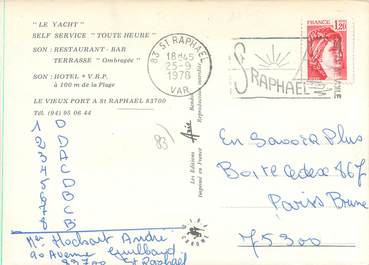 " LE YACHT "
SELF SERVICE " TOUTE HEURE "
SON : RESTAURANT - BAR
TERRASSE " Ombragée "
SON : HOTEL * V.R.P.
à 100 m de la Plage
LE VIEUX PORT A St RAPHAEL 83700
Tél. (94) 95 06 44
1 D
2 D
3 A
4 C
5 D
6 B
7 C
8 B
Mer Hochart André
20 Avenue Guilbaud
83700 St Raphael
83
Les Editions Aris
imprimé en France
Reproduction interdite
83 ST RAPHAEL
18H45
25-9
1978
VAR
ST RAPHAEL
FRANCE
1,20
En Savoir Plus
Boite Cedex 867
Paris Brune
75300